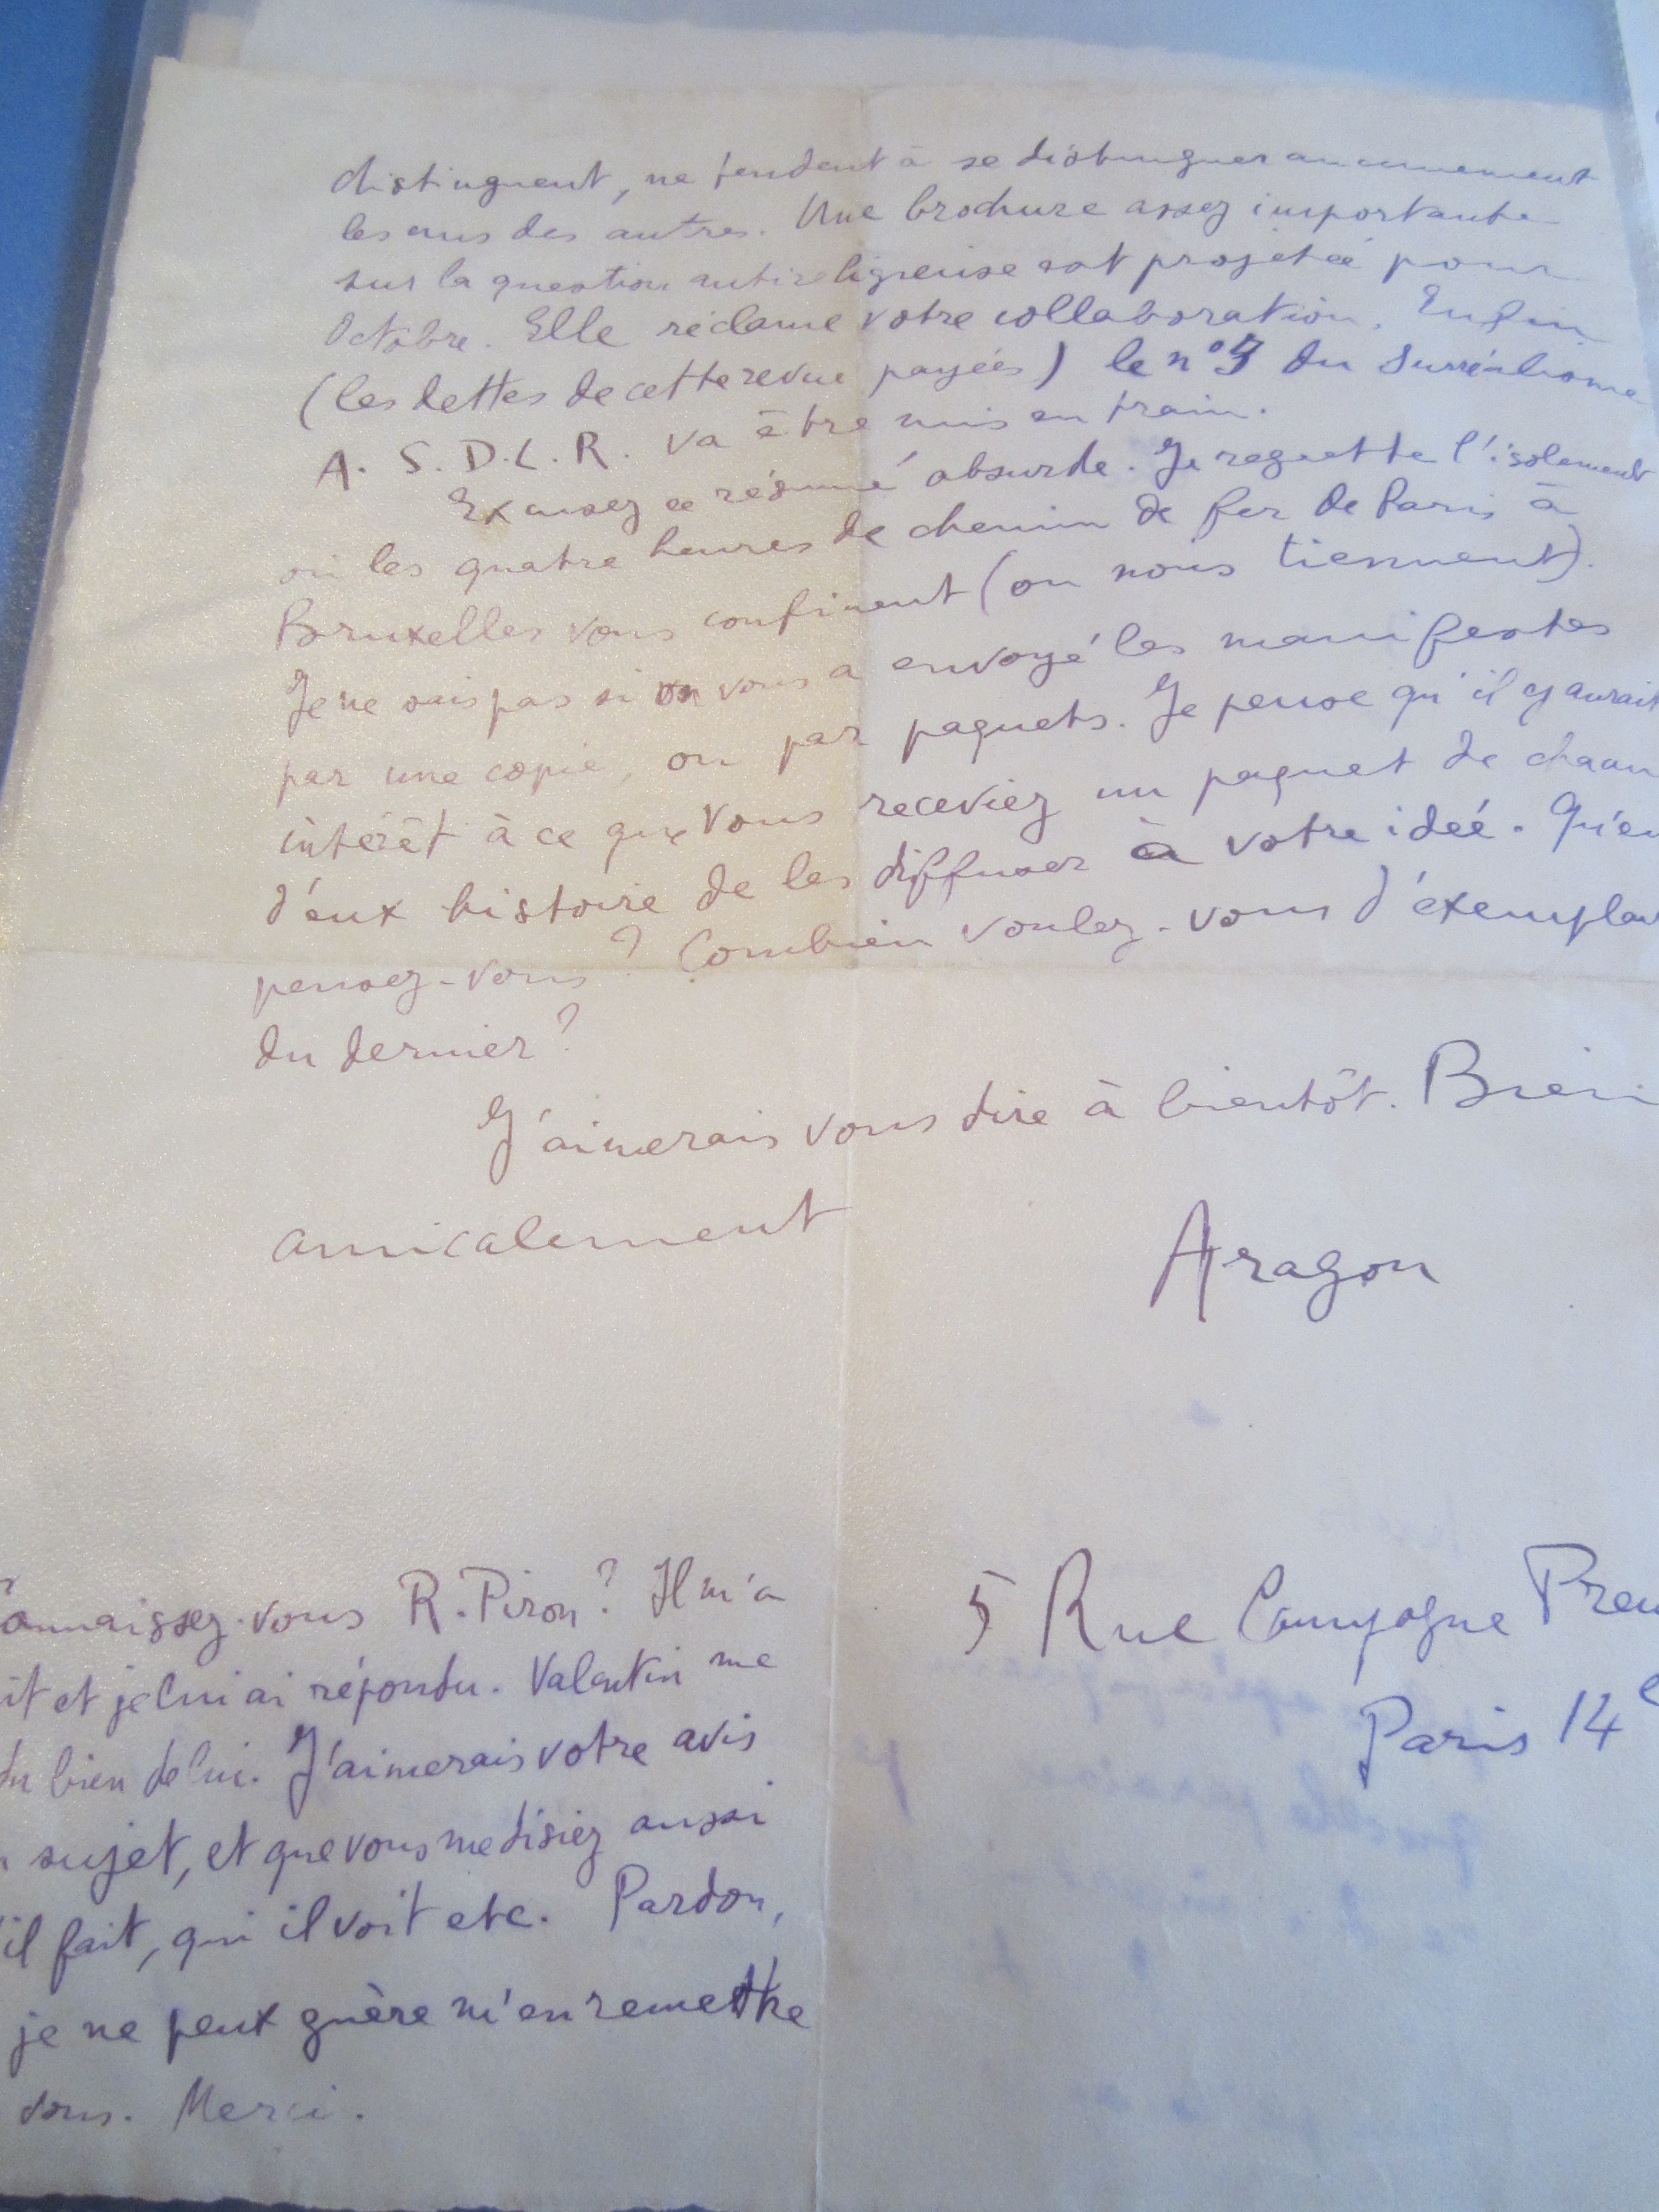 distinguent, ne tendent à se distinguer aucunement
les uns des autres. Une brochure assez importante
sur la question antireligieuse est projetée pour
Octobre. Elle réclame votre collaboration. Enfin
(les dettes de cette revue payées) le n° du Surréalisme
A. S. D. L. R. va être mis en train.
Excusez ce résumé absurde. Je regrette l'isolement
où les quatre heures de chemin de fer de Paris à
Bruxelles vous confinent (ou nous tiennent).
Je ne sais pas si on vous a envoyé les manifestes
par une copie, ou par paquets. Je pense qu'il y aurait
intérêt à ce que vous receviez un paquet de chacun
d'eux histoire de les diffuser à votre idée. Qu'en
pensez-vous? Combien voulez-vous d'exemplai
du dernier?
J'aimerais vous dire à bientôt. Bien
amicalement
Aragon
Connaissez-vous R. Piron? Il m'a
it et je lui ai répondu. Valentin me
du bien de lui. J'aimerais votre avis
sujet, et que vous me disiez aussi
'il fait, qui il voit etc. Pardon,
je ne peux guère m'en remettre
vous. Merci.
5 Rue Campagne Prem
Paris 14e